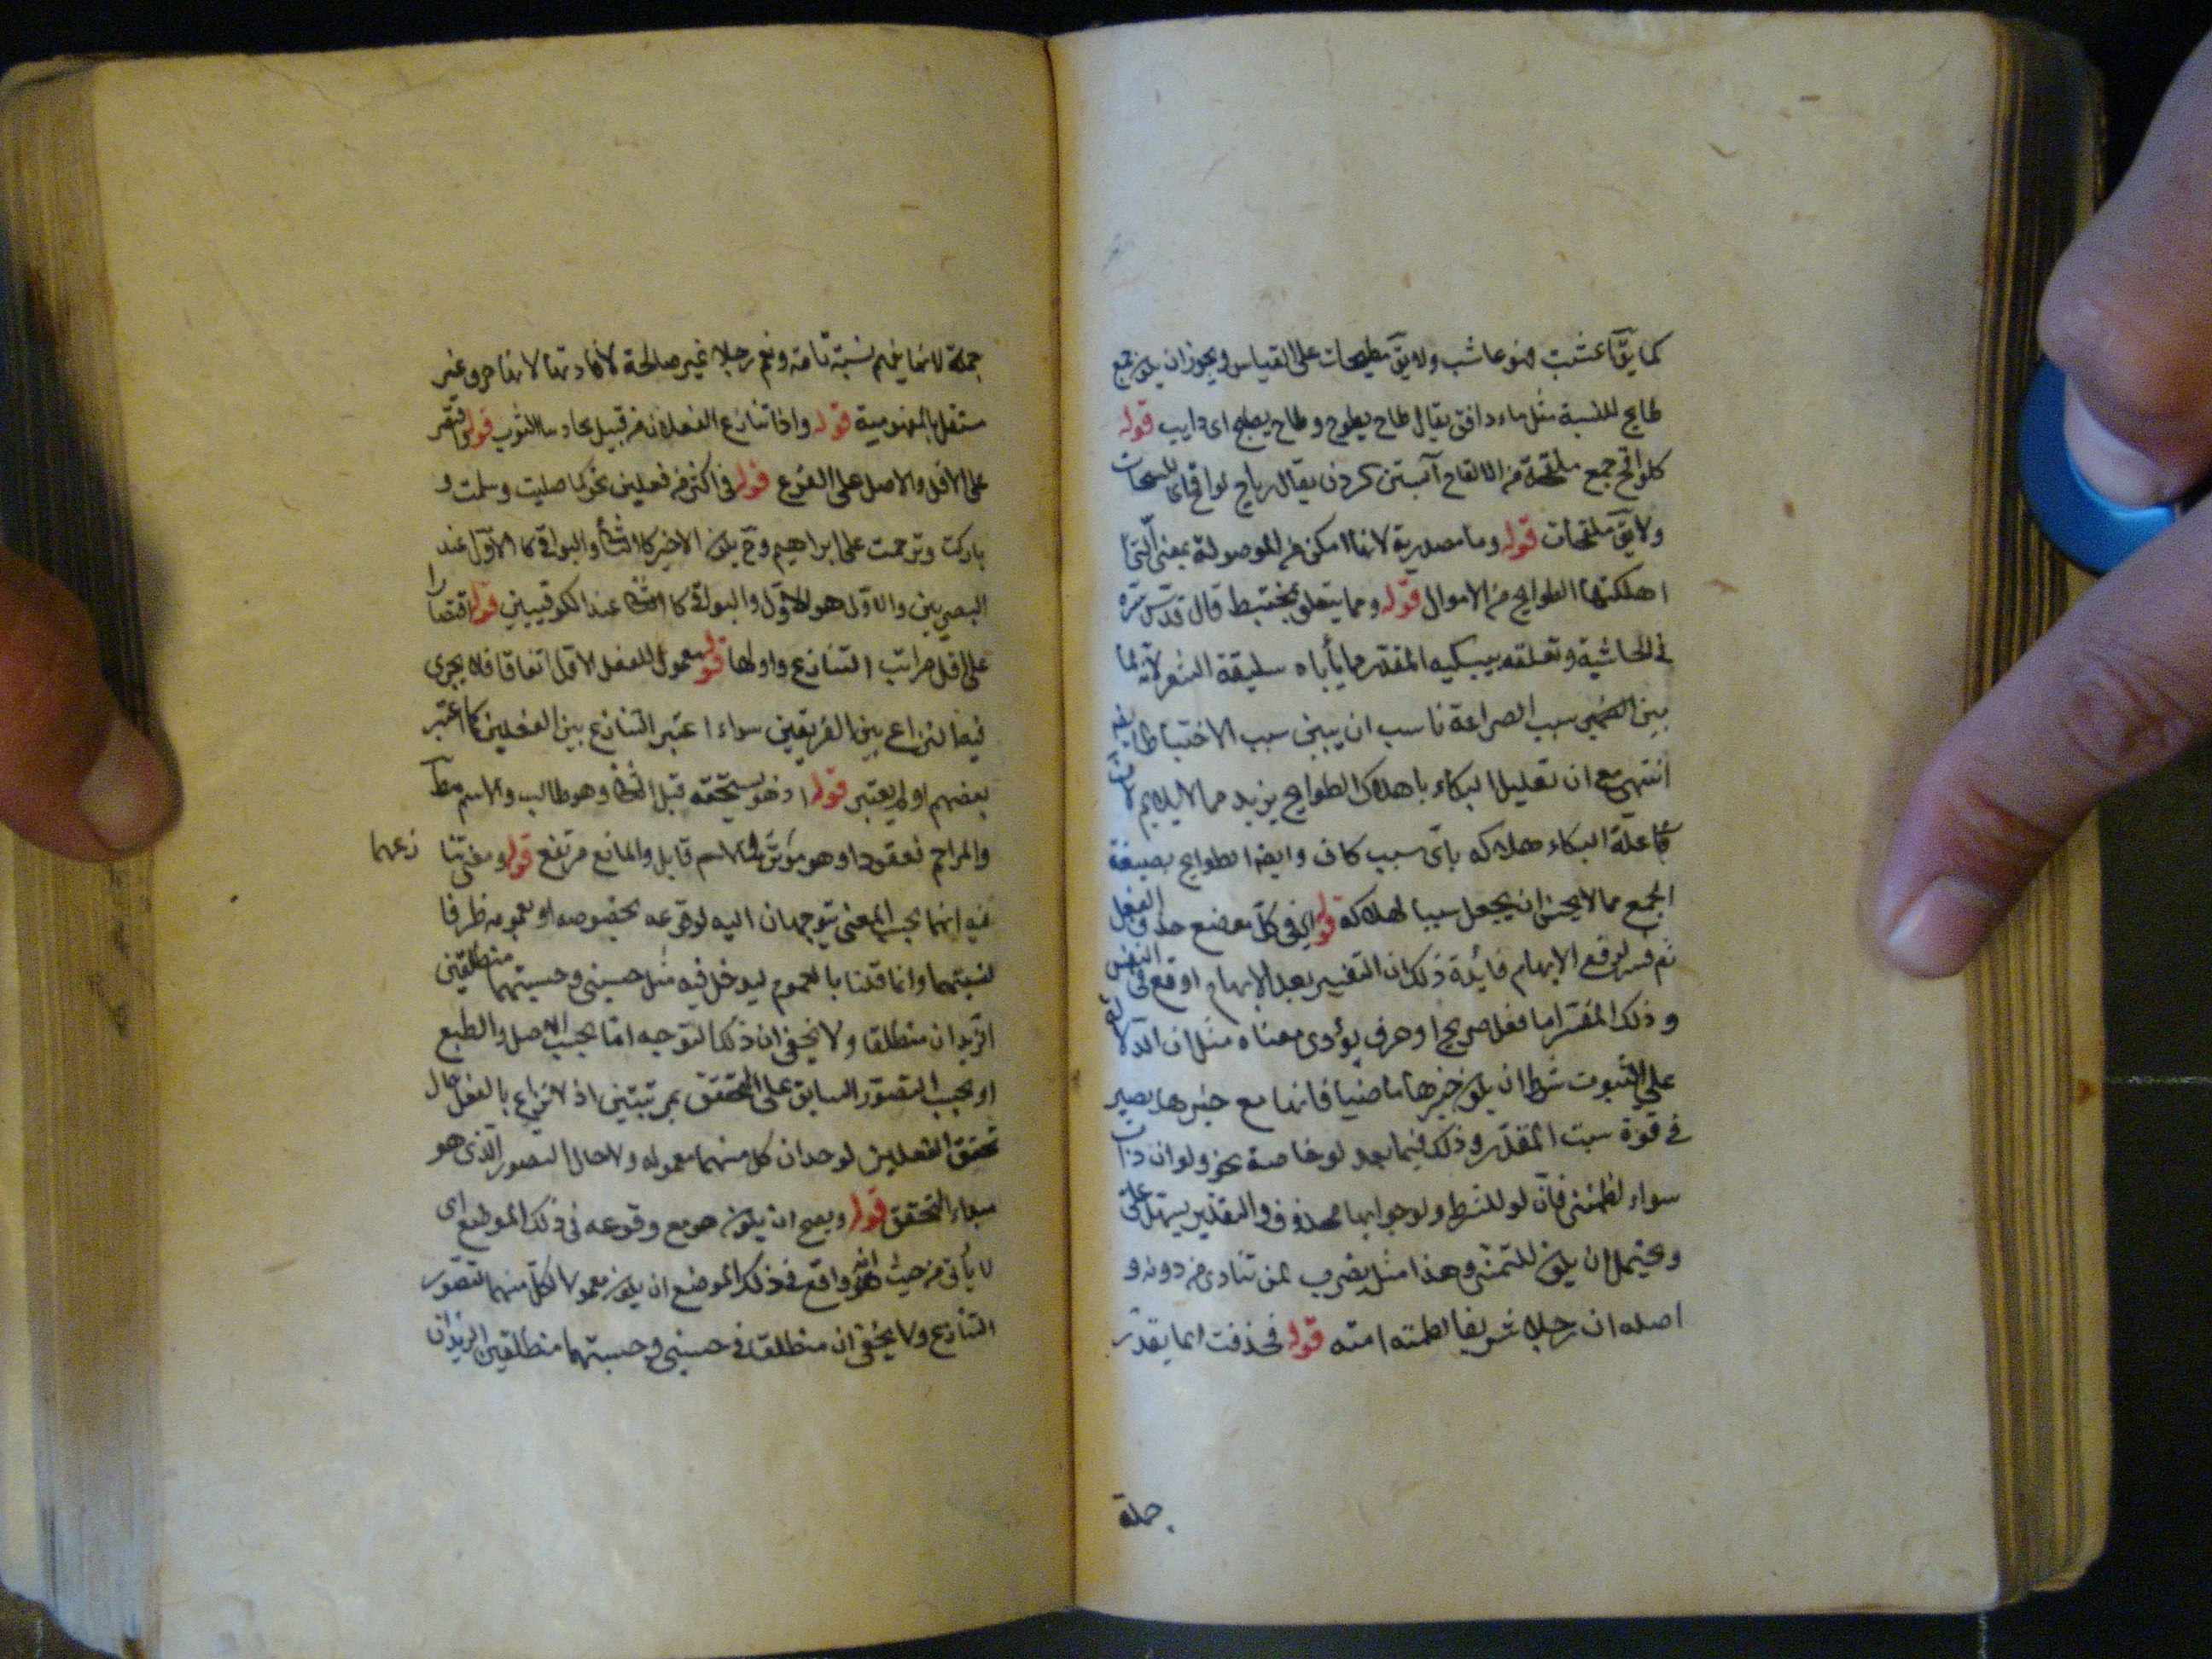 كما يقٓ اعشبت فهو عاشب ولا يقٓ مطيحات على القياس ويجوز ان يكون جمع
طايح للنسبة مثل ماء دافق يقال طاح يطوح وطاح يطيح اى قوله
كلواقح جمع ملقحة من الالقاح آبستن كردن يقال رياح لواقح
ولا يقٓ ملقحات قوله وما مصدرية لانها امكن من الموصولة بمعنى الّتى
اهلكتها الطوايح من الاموال قوله ومما يتعلق بمختبط قال قدّس سرّه
فى الحاشية وتعلقه بيبكيه المقدر مما يأباه سليقة الشعر لانّه لما
بين سبب الضراعة ناسب ان يبين سبب الاختباط ايضا
انتهى مع ان تعليل البكاء باهلاك الطوايح يزيد مما لا يلايم لانّ
علّة البكاء هلاكه باىّ سبب كان وايضا الطوايح بصيغة
الجمع مما لا يحسن ان يجعل سببا لهلاكه قوله اى فى كلّ موضع حذف الفعل
ثم فسر لرفع الابهام فائدة ذلك ان التفسير بعد الابهام اوقع فى النفس
وذلك المفسّر اما فعل صريح او حرف يؤدى معناه مثل ان الدّالة
على الثبوت شرط ان يكون خبرها ماضيا فانها مع خبرها يصير
فى قوة ثبت المقدّر وذلك فيما بعد لو خاصة نحو ولو ان ذات
سواء لطمتنى فانّ لو للشرط ولو جوابها محذوف والتقدير لسهل علىّ
ويحتمل ان يكون للتمنى وهذا مثل يضرب لمن تنادى من دونه و
اصله ان رجلا شريفا لطمته امته قوله فحذفت انما يقدّر
جملة
جملة لانها يفهم نسبة تامة ونعم رجلا غير صالحة لافادتها لانها حرف غير
مستقل بالمفهومية قوله واذا تنازع الفعلان من قبيل قوله واقتصر
على الاقل والاصل على الفرع قوله فى اكثر من فعلين نحو كما صليت وسلمت و
باركت وترحمت على ابراهيم وحٓ يكون الاخير كالثانى والبواقى كالاوّل عند
البصريين والاوّل هو الاوّل والبواقى كالثانى عند الكوفيين قوله اقتصارا
على اقل مراتب التنازع واولها قوله معمول للفعل الاول اتفاقا فلا يجرى
فيها النزاع بين الفريقين سواء اعتبر التنازع بين الفعلين كما اعتبر
بعضهم او لم يعتبر قوله اذ هو يستحقه قبل الثانى وهو طالب والاسم
والمزاحم مفقود او هو مؤثر والاسم قابل والمانع مرتفع قوله
زعمها
فيه انهما بحسب المعنى يتوجهان اليه لوقوعه بخصوصه او بعمومه ظرفا
لنسبتهما وانما قلنا بالعموم ليدخل فيه مثل حسبنى وحسبتهما منطلقين
الزيدان منطلقا ولا يخفى ان ذلك التوجه اما بحسب الاصل والطبع
او بحسب التصور السابق على التحقق بمرتبتين اذ لا نزاع بالفعل حال
تحقق الفعلين لوجدان كل منهما معموله ولا حال التصور الّذى هو
مبداء التحقق قوله ويصح ان يكون هو مع وقوعه فى ذلك الموضع اى
لا يأبى من حيث انه واقع فى ذلك الموضع ان يكون معمولا لكلّ منهما لتصوّر
التنازع ولا يخفى ان منطلقا فى حسبنى وحسبتهما منطلقين الزيدان